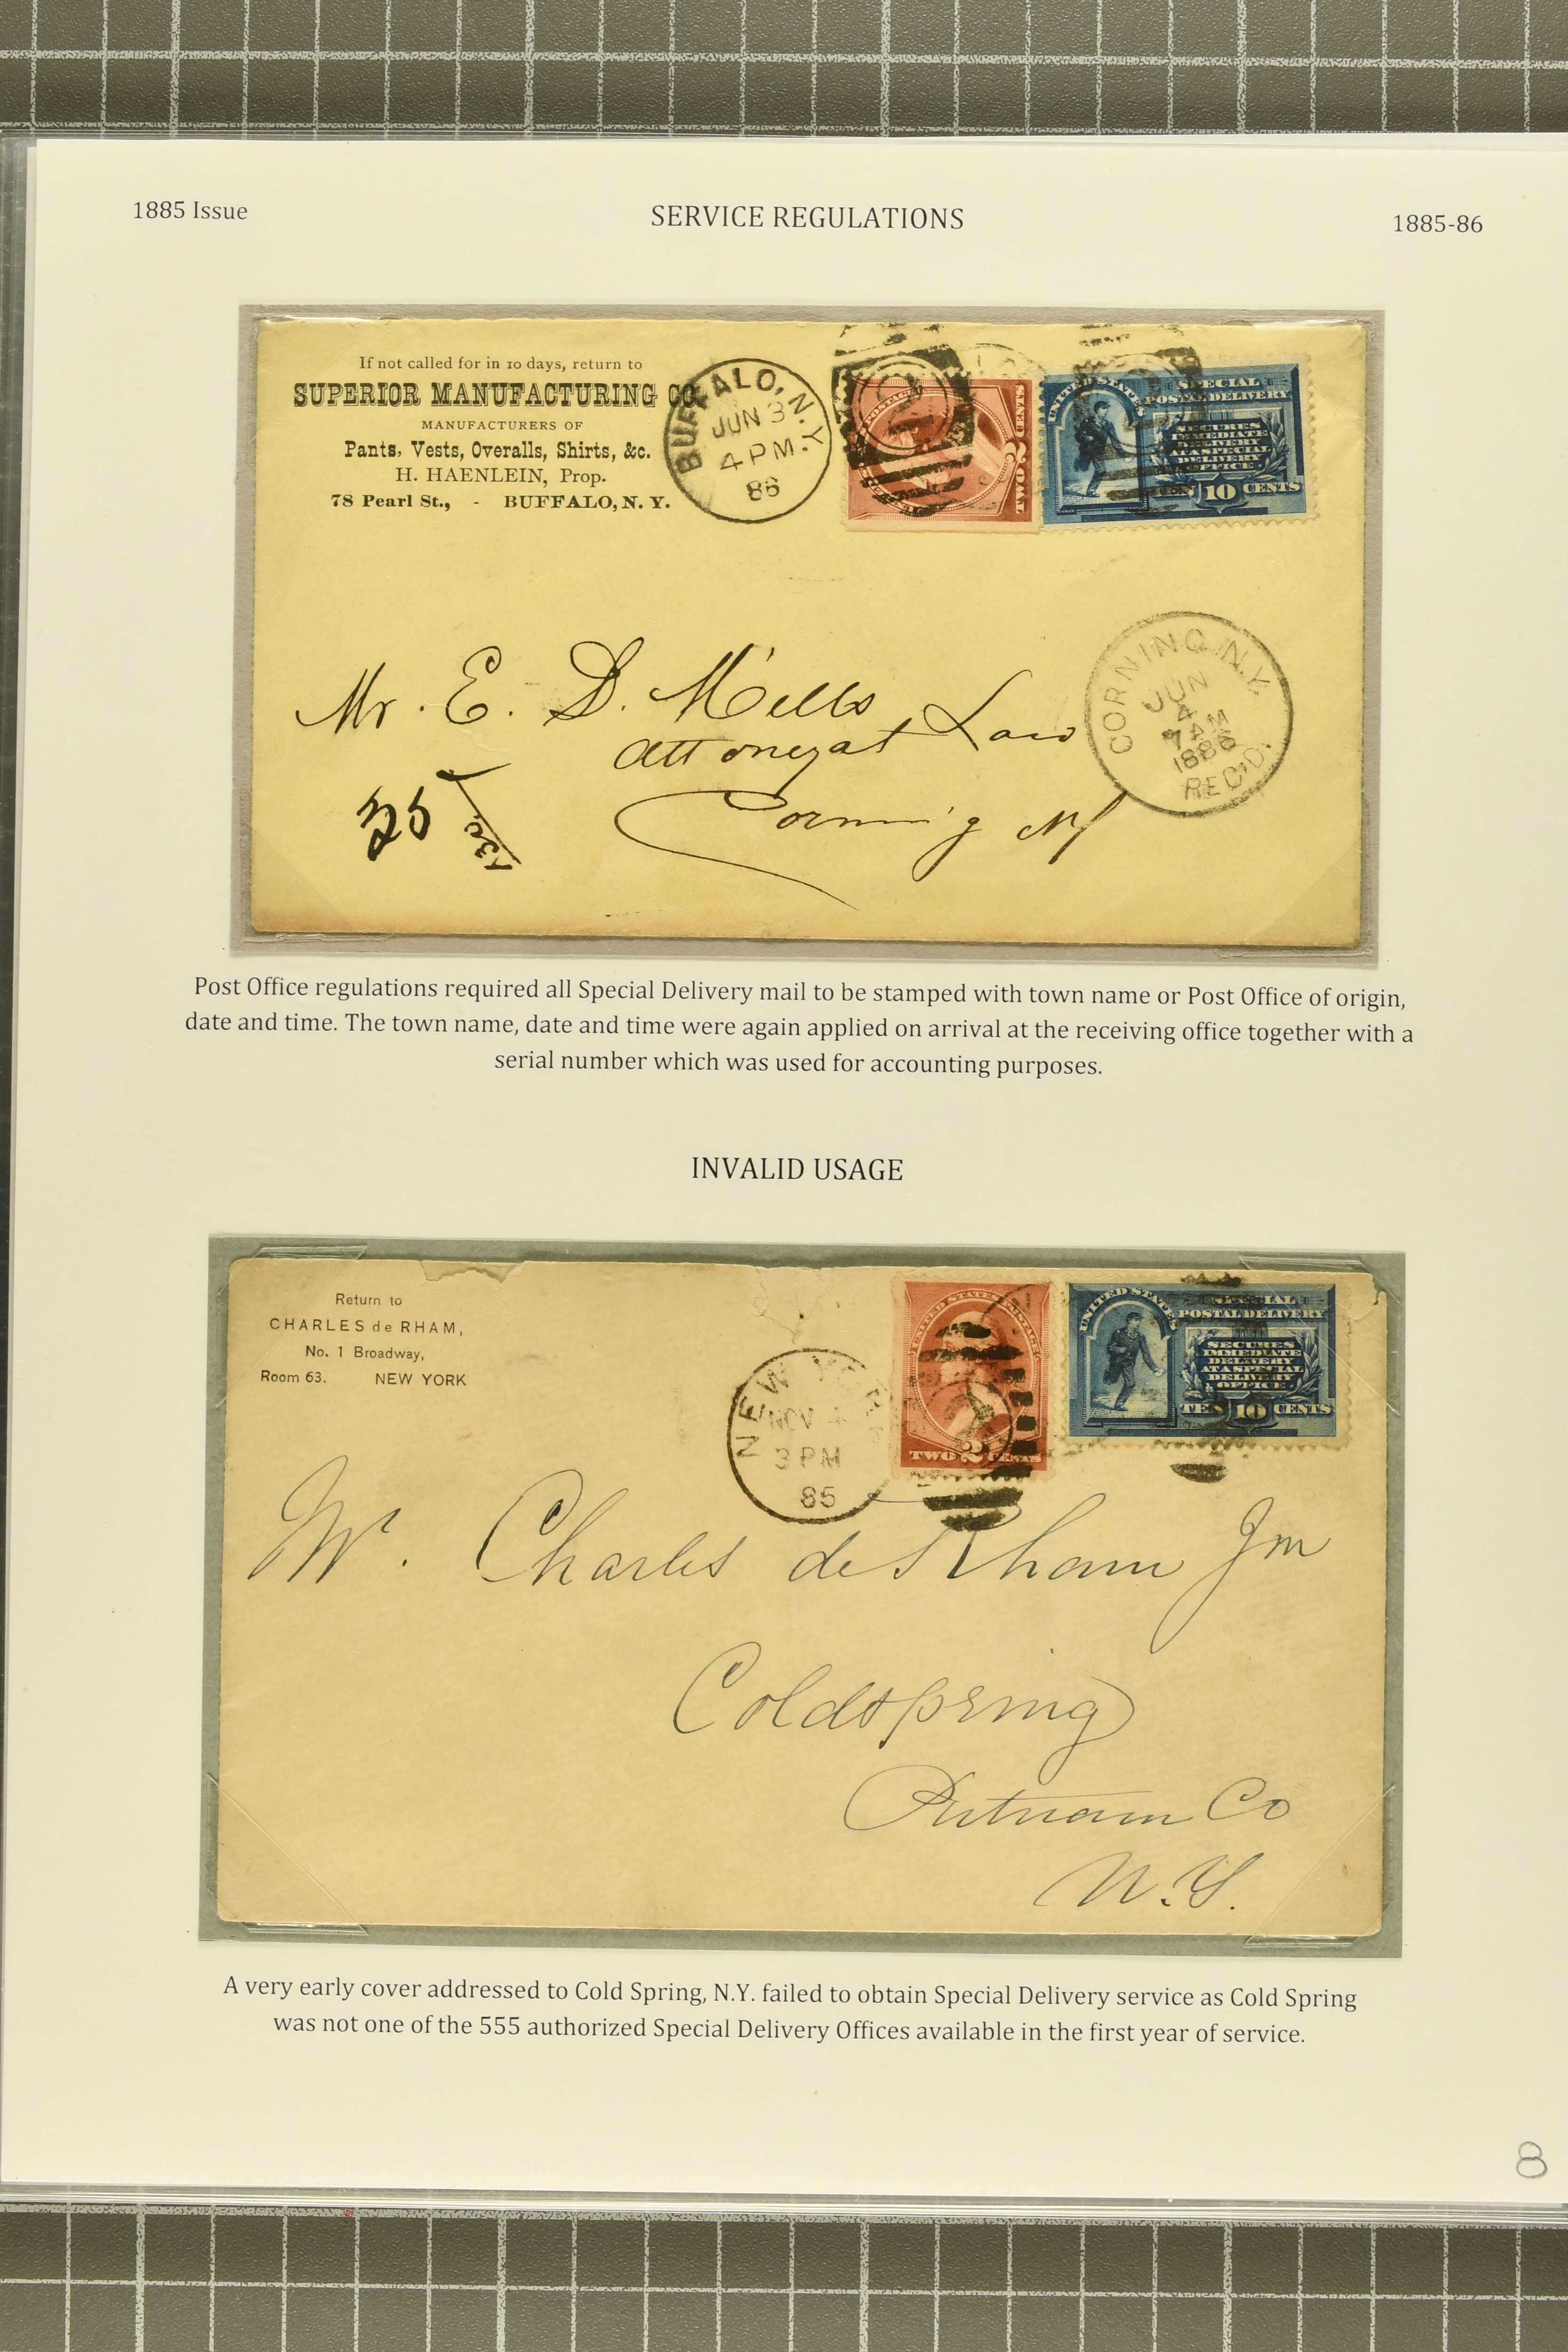 1885 Issue
SERVICE REGULATIONS
1885-86
If not called for in 10 days, return to
SUPERIOR MANUFACTURING CO.
MANUFACTURERS OF
Pants, Vests, Overalls, Shirts, &c.
H. HAENLEIN, Prop.
78 Pearl St., - BUFFALO, N. Y.
BUFFALO, N.Y.
JUN 3
4 PM.
86
2
TWO 2 CENTS
UNITED STATES
SPECIAL
POSTAL DELIVERY
SECURES
IMMEDIATE
DELIVERY
AT A SPECIAL
DELIVERY
OFFICE.
10 CENTS
Mr. E. D. Mills
Attorney at Law
Corning NY
25
CORNING, N.Y.
JUN
4
7 AM
1886
REC'D.
Post Office regulations required all Special Delivery mail to be stamped with town name or Post Office of origin,
date and time. The town name, date and time were again applied on arrival at the receiving office together with a
serial number which was used for accounting purposes.
INVALID USAGE
Return to
CHARLES de RHAM,
No. 1 Broadway,
Room 63. NEW YORK
NEW YORK
NOV 4
3 PM
85
UNITED STATES POSTAGE
TWO 2 CENTS
UNITED STATES
SPECIAL
POSTAL DELIVERY
SECURES
IMMEDIATE
DELIVERY
AT A SPECIAL
DELIVERY
OFFICE.
TEN 10 CENTS
Mr. Charles de Rham Jnr
Coldspring
Putnam Co
N.Y.
A very early cover addressed to Cold Spring, N.Y. failed to obtain Special Delivery service as Cold Spring
was not one of the 555 authorized Special Delivery Offices available in the first year of service.
8